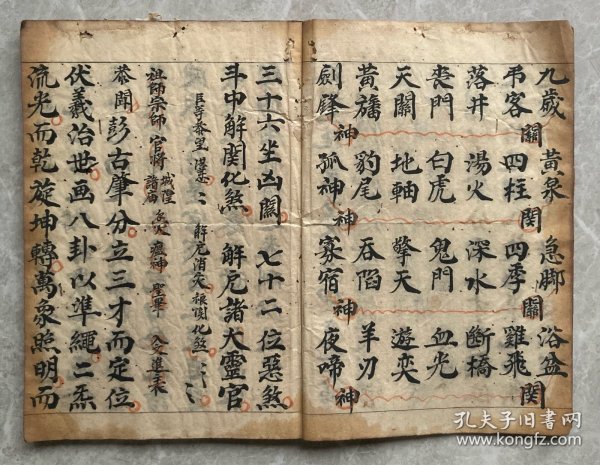 九歲 黃泉 急脚 浴盆
關 関 關 関
吊客 四柱 四季 雞飛
落井 湯火 深水 斷橋
喪門 白虎 鬼門 血光
天關 地軸 擎天 遊奕
黃旛 豹尾 吞陷 羊刃
神 神 神 神
劍鋒 孤神 寡宿 夜啼
三十六坐凶關 七十二位惡煞
斗中解関化煞 解厄諸大靈官
解厄消灾
祖師宗師 官將 城隍 諸廟
恭聞彭古肇分立三才而定位
伏羲治世画八卦以準繩二炁
流光而乾旋坤轉萬象照明而
孔夫子旧书网
www.kongfz.com